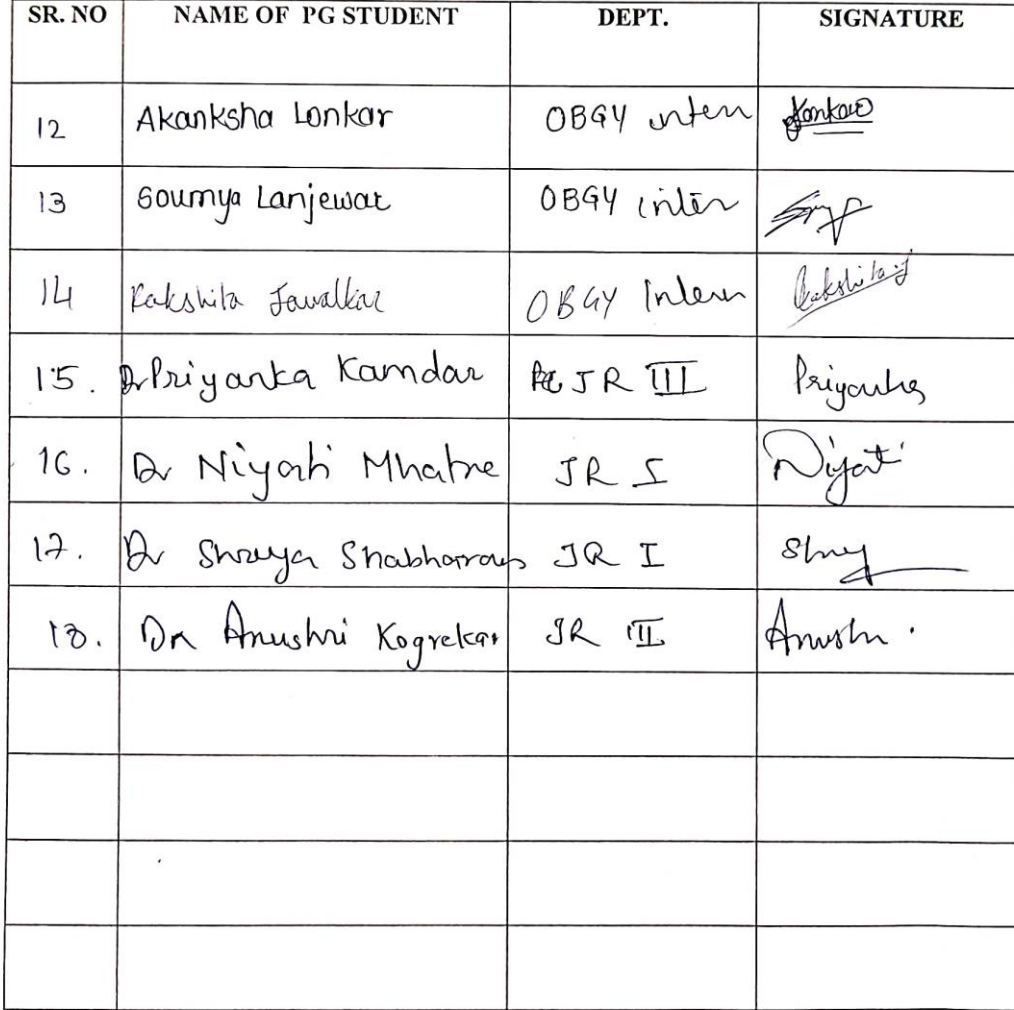 SR. NO NAME OF PG STUDENT DEPT. SIGNATURE
12 Akanksha Lonkar OBGY intern Lonkar
13 Soumya Lanjewar OBGY inter
14 Rakshita Jawalkar OBGY Intern Rakshita.J
15. Dr Priyanka Kamdar JR III Priyanka
16. Dr Niyati Mhatre JR I Niyati
17. Dr Shreya JR I Shrey
18. Dr Anushri Kogrekar JR III Anushri